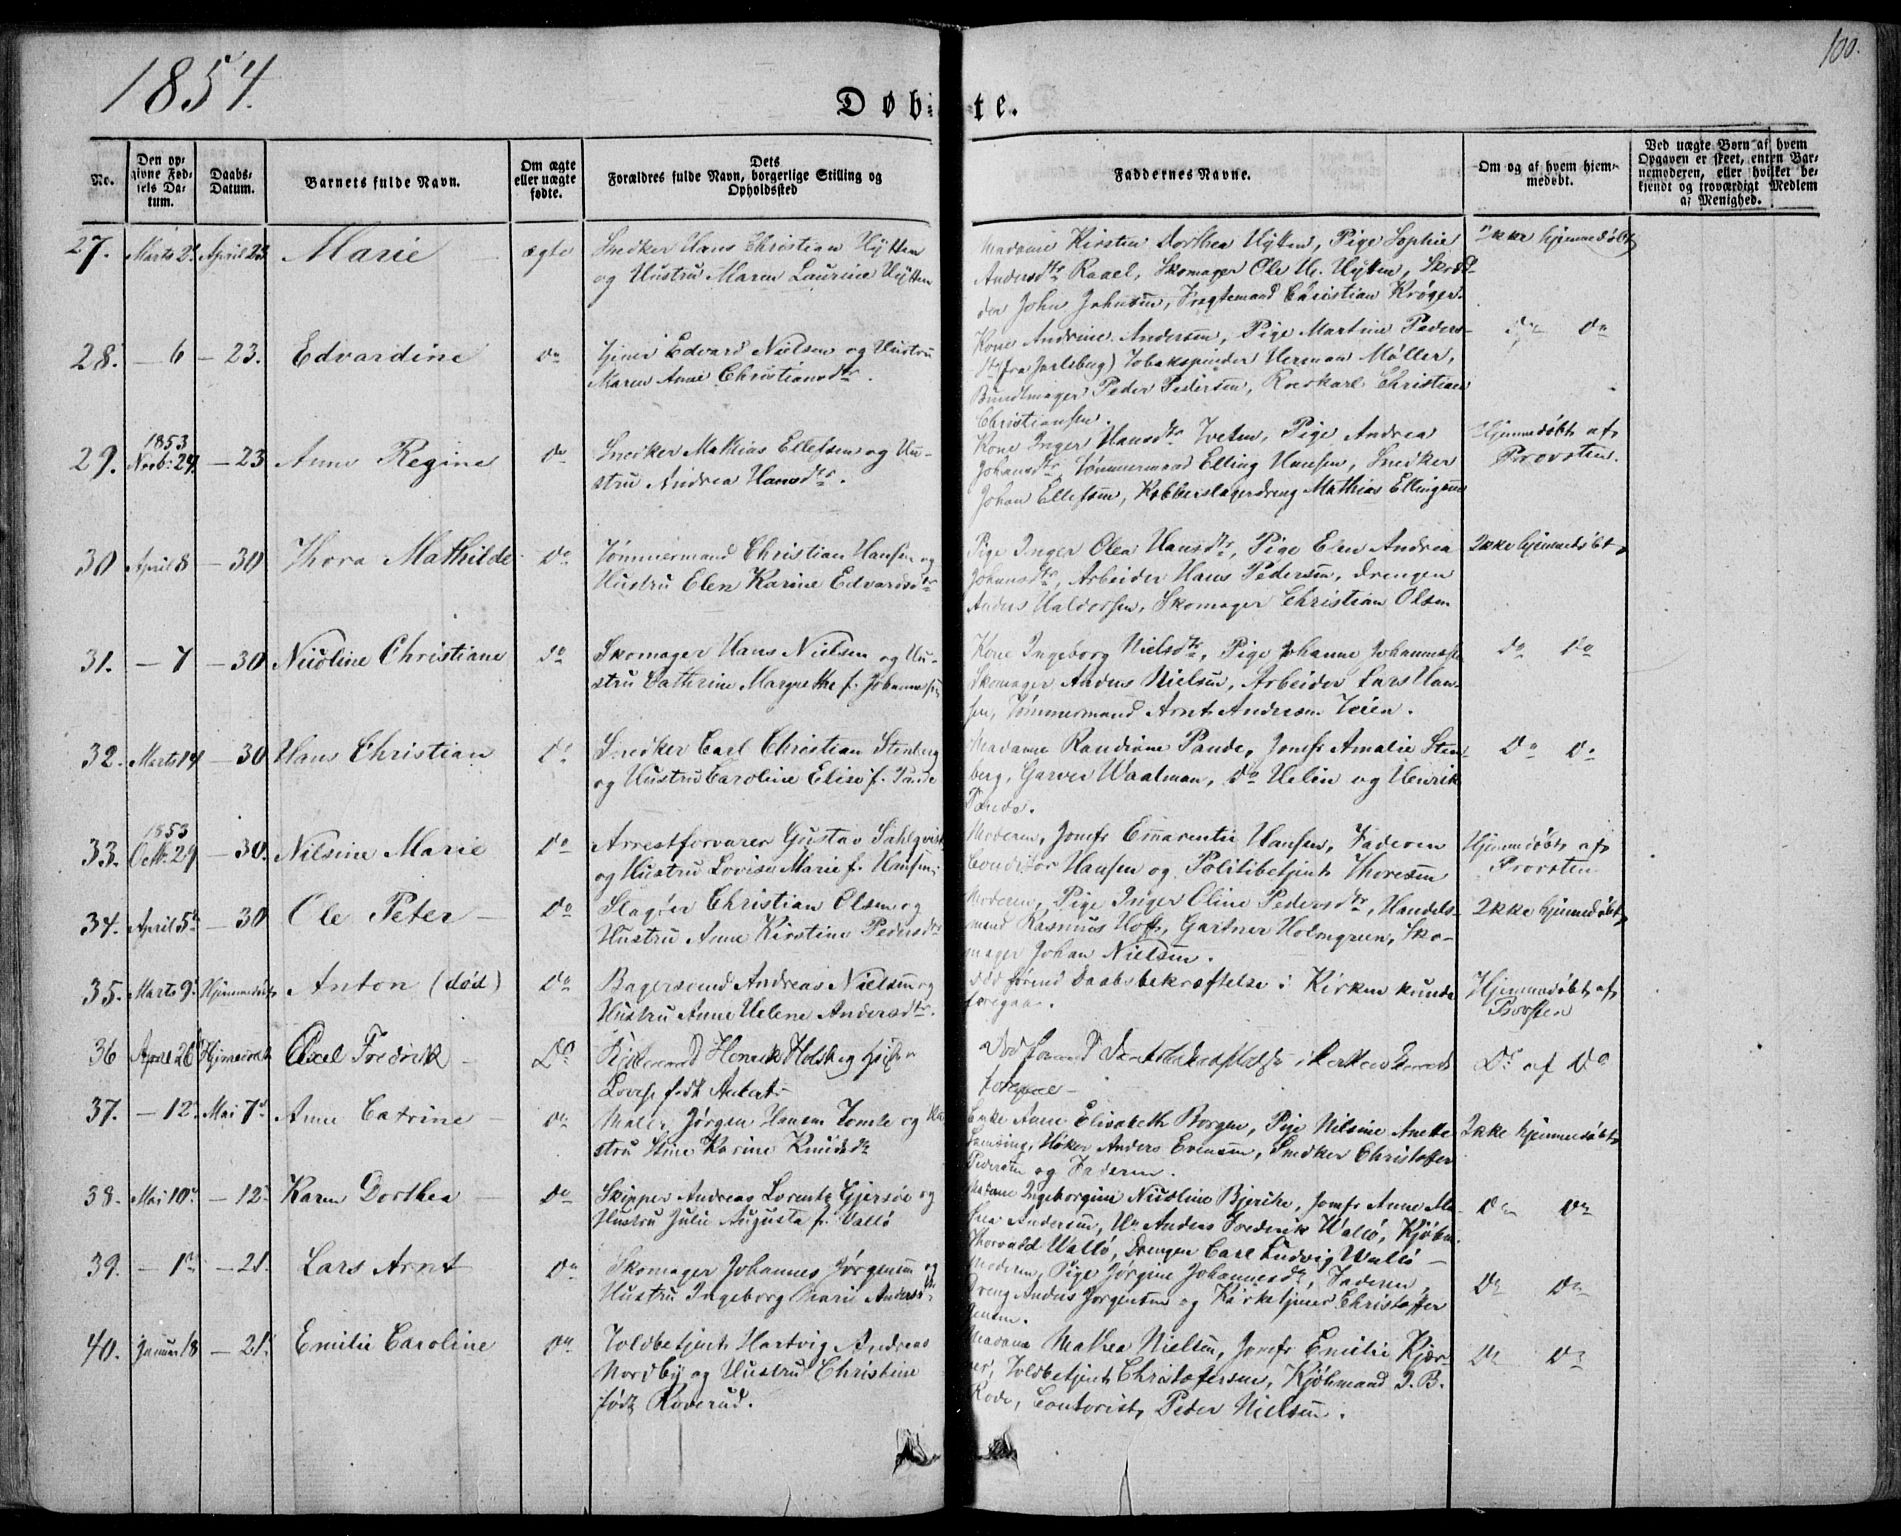 1854.
100.
Døb- te.
No.
Den op-
givne Fød-
sels Da-
tum.
Daabs-
Datum.
Barnets fulde Navn.
Om ægte
eller uægte
fødte.
Dets
Forældres fulde Navn, borgerlige Stilling og
Opholdssted
Faddernes Navne.
Om og af hvem hjem-
medøbt.
Ved uægte Børn af hvem
Opgaven er skeet, enten Bar-
nemoderen, eller hvilket be-
kjendt og troværdigt Medlem
af Menighed.
27. Marts 2 April 23 Marie ægte Snedker Hans Christian Hytten
og Hustru Maren Laurine Hytten
Madame Kirsten Dorthea Hytten, Pige Sophie
Andersdtr Raael, Skomager Ole H. Hytten,
John Johnsen, Fragtemand Christian Krøger.
Ikke hjemmedøbt
28. — 6 — 23. Edvardine Do Tjener Edvard Nielsen og Hustru
Maren Anne Christiansdtr.
Kone Andrine Andersen, Pige Martine Peders-
dtr (fra Jarlsberg) Tobakspinder Herman Møller,
Bundtmager Peder Pedersen, Roerskarl Christian
Christiansen.
Do Do
29. 1853 Novb: 24. — 23 Anne Regine Do Snedker Mathias Ellefsen og Hu-
stru Andrea Hansdtr.
Kone Inger Hansdtr Tveten, Pige Andrea
Johansdtr, Tømmermand Elling Hansen, Snedker
Johan Ellefsen, Kobberslagerdreng Mathias Ellingsen
Hjemmedøbt af
Provsten.
30 April 8 — 30 Thora Mathilde Do Tømmermand Christian Hansen og
Hustru Elen Karine Edvardsdtr
Pige Inger Olea Hansdtr, Pige Elen Andrea
Johansdtr, Arbeider Hans Pedersen, Drengen
Anders Haldorsen, Skomager Christian Olsen
Ikke hjemmedøbt
31. — 7 — 30 Nicoline Christiane Do Skomager Hans Nielsen og Hu-
stru Cathrine Margrethe f. Johannesen
Kone Ingeborg Nielsdtr, Pige Johanne Johannesen
Skomager Anders Nielsen, Arbeider Lars Han-
sen, Tømmermand Arnt Andersen Veien.
Do Do
32. Marts 14 — 30 Hans Christian Do Snedker Carl Christian Stenberg
og Hustru Caroline Elise f. Pande
Madame Randine Pande, Jomfr Amalie Sten-
berg, Garver Waalman, Do Helin og Henrik
Pande.
Do Do
33. 1853 Octb. 29 — 30. Nilsine Marie Do Arrestforvarer Gustav Sahlqvist
og Hustru Lovise Marie f. Hansen
Moderen, Jomfr Emarentie Hansen, Faderen
Conditor Hansen og Politibetjent Thoresen
Hjemmedøbt af
Provsten
34. April 5 — 30 Ole Peter Do Slagter Christian Olsen og
Hustru Anne Kirstine Pedersdtr
Moderen, Pige Inger Oline Pedersdtr, Handels-
mand Rasmus Hoff, Gartner Holmgreen, Sko-
mager Johan Nielsen.
Ikke hjemmedøbt
35. Marts 9. Hjemmedøbt Anton (død) Do Bagersvend Andreas Nielsen og
Hustru Anne Helene Andersdtr.
Død førend Daabsbekræftelse i Kirken kunde
foregaae.
Hjemmedøbt af
Provsten
36 April 26 Hjemmedøbt Axel Fredrik Do Kjøbmand Henrik Holst og
Lovise født
Død førend Daabsbekræftelse i Kirken kunde
foregaae —
Do af Do
37. — 12. Mai 7. Anne Catrine Do Maler Jørgen Hansen Tomte og Hu-
stru Stine Karine Knudsdtr
Enke Anne Elisabeth Borgen, Pige Nilsine Anette
Høker Anders Evensen, Snedker Christoffer
Pedersen og Faderen.
Ikke hjemmedøbt
38. Mai 10. — 12. Karen Dorthea Do Skipper Andreas Lorentz Gjersøe og
Hustru Julie Augusta f. Vallø
Madame Ingeborgine Nicoline Bjerke, Jomfr Anne Ma-
thea Andersen, Hr Anders Frederik Wallø, Kjøbm.
Thorvald Wallø, Drengen Carl Ludvig Wallø —
Do Do
39. — 1 — 21. Lars Arnt Do Skomager Johannes Jørgensen og
Hustru Ingeborg Marie Andersdtr.
Moderen, Pige Jørgine Johannesdtr, Faderen,
Dreng Anders Jørgensen og Kirketjener Christoffer
Jensen.
Do Do
40. Januar 18 — 21. Emilie Caroline Do Toldbetjent Hartvig Andreas
Nordby og Hustru Christine
født Roverud.
Madame Mathea Nielsen, Jomfr Emilie Kjær-
ner, Toldbetjent Christofersen, Kjøbmand I. B.
Rode, Contorist Peder Nielsen.
Do Do